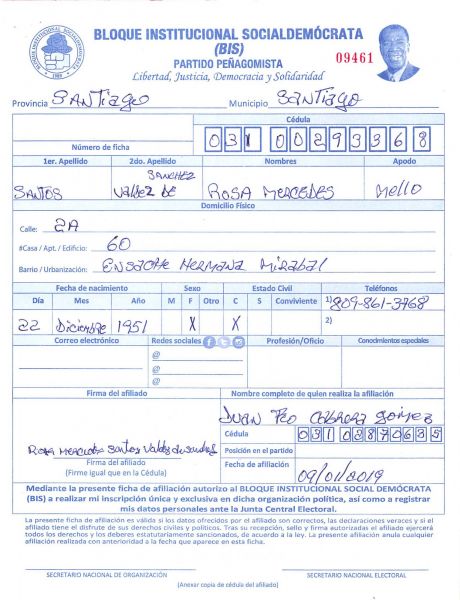 BLOQUE INSTITUCIONAL SOCIALDEMÓCRATA
(BIS)
PARTIDO PEÑAGOMISTA
Libertad, Justicia, Democracia y Solidaridad
09461
Provincia SANTiago Municipio SANTiago
Cédula
Número de ficha 031 0029336 8
1er. Apellido 2do. Apellido Nombres Apodo
SANTOS Valdez DE SANCHEZ ROSA MERCEDES Mello
Domicilio Físico
Calle: 2A
#Casa / Apt. / Edificio: 60
Barrio / Urbanización: ENSACHE HERMANA MIRABAL
Fecha de nacimiento Sexo Estado Civil Teléfonos
Día Mes Año M F Otro C S Conviviente 1) 809-861-3768
22 Diciembre 1951 X X 2)
Correo electrónico Redes sociales Profesión/Oficio Conocimientos especiales
@
@
@
Firma del afiliado Nombre completo de quien realiza la afiliación
JUAN Fco CABRERA GOMEZ
Cédula 031 0387063 5
ROSA Mercedes Santos Valdez de Posición en el partido
Firma del afiliado
(Firme igual que en la Cédula) Fecha de afiliación 09/01/2019
Mediante la presente ficha de afiliación autorizo al BLOQUE INSTITUCIONAL SOCIAL DEMÓCRATA
(BIS) a realizar mi inscripción única y exclusiva en dicha organización política, así como a registrar
mis datos personales ante la Junta Central Electoral.
La presente ficha de afiliación es válida si los datos ofrecidos por el afiliado son correctos, las declaraciones veraces y si el
afiliado tiene el disfrute de sus derechos civiles y políticos. Tras su recepción, sello y firma autorizadas el afiliado ejercerá
todos los derechos y los deberes estatutariamente sancionados, de acuerdo a la ley. La presente afiliación anula cualquier
afiliación realizada con anterioridad a la fecha que aparece en esta ficha.
SECRETARIO NACIONAL DE ORGANIZACIÓN SECRETARIO NACIONAL ELECTORAL
(Anexar copia de cédula del afiliado)